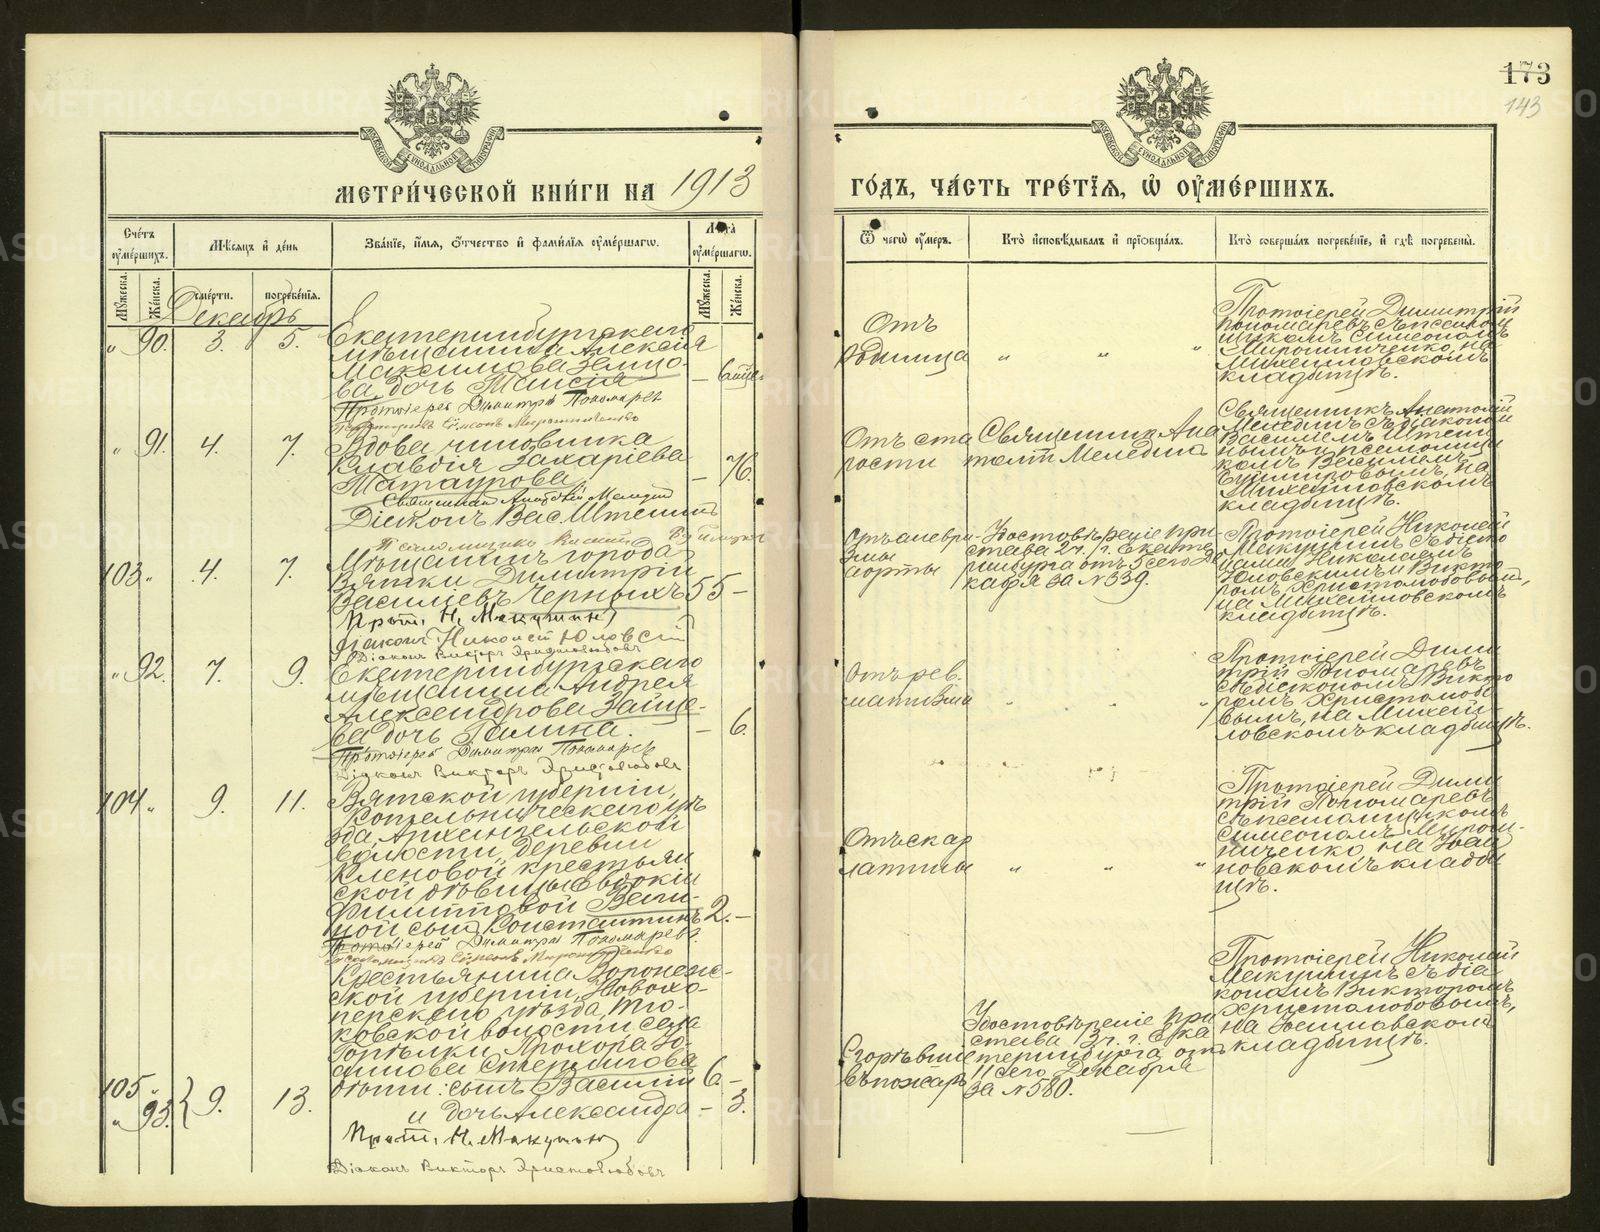 173
143
МЕТРИ́ЧЕСКОЙ КНИ́ГИ НА 1913
ГО́ДЪ, ЧА́СТЬ ТРЕ́ТІѦ, Ѡ҆ ОУ҆МЕ́РШИХЪ.
Сче́тъ оумє́ршихъ.
Мѣ́сѧцъ и҆ де́нь
Зва́нїе, и҆́мѧ, ѻ҆́тчество и҆ фами́лїѧ оу҆ме́ршагѡ.
Лѣ́та оу҆ме́ршагѡ.
Ѿ чегѡ̀ оу҆́меръ.
Кто̀ и҆сповѣ́дывалъ и҆ прїѡбща́лъ.
Кто̀ соверша́лъ погребе́нїе, и҆ гдѣ̀ погребены̀.
Мꙋ́жеска.
Же́нска.
сме́рти.
погребе́нїѧ.
Мꙋ́жеска.
Же́нска.
Декабрь
„ 90. 3. 5.
Екатеринбургскаго
мѣщанина Алексія
Максимова Земцо-
ва дочь Таисія
Протоіерей Димитрій Пономаревъ
Псаломщикъ Симеонъ Мирошниченко
Отъ
родимца „ „ „
Протоіерей Димитрій
Пономаревъ съ псалом
щикомъ Симеономъ
Мирошниченко, на
Михайловскомъ
кладбищѣ.
„ 91. 4. 7.
Вдова чиновника
Клавдія Захаріева
Татаурова
— 76.
Священникъ Анатолій Меледин
Діаконъ Вас. Штенниковъ
Отъ ста
рости
Священникъ Ана
толій Меледина
Священникъ Анатолій
Мелединъ съ діакономъ
Василіемъ
нымъ и псаломщи
комъ Василіемъ
на
Михайловскомъ
кладбищѣ.
103 „ 4. 7.
Мѣщанинъ города
Вятки Димитрій
Василіевъ Черныхъ
55 —
Прот. Н. Макушинъ
Діаконъ Николай Юловскій
Діаконъ Викторъ Христолюбовъ
Отъ аневри-
змы
аорты
Удостовѣреніе при-
става 2 ч. г. Екате
ринбурга отъ 5 сего де
кабря за № 339.
Протоіерей Николай
Макушинъ съ діако
нами Николаемъ
Юловскимъ и Викто
ромъ Христолюбовымъ,
на Михайловскомъ
кладбищѣ.
„ 92. 7. 9.
Екатеринбургскаго
мѣщанина Андрея
Александрова Зайце-
ва дочь Галина.
— 6.
Протоіерей Димитрій Пономаревъ
Діаконъ Викторъ Христолюбовъ
Отъ рев.
матизма „ „ „
Протоіерей Дими
трій Пономаревъ
съ діакономъ Викто
ромъ Христолюбо
вымъ, на Михай-
ловскомъ кладбищѣ.
104 „ 9. 11.
Вятской губерніи,
Котельническаго уѣ
зда, Архангельской
волости, деревни
Кленовой крестьян
ской дѣвицы Евдокіи
Филипповой
ной сынъ Константинъ
2. —
Протоіерей Димитрій Пономаревъ.
Псаломщикъ Симеонъ Мирошниченко
Отъ скар
латины „ „ „
Протоіерей Дими
трій Пономаревъ
съ псаломщикомъ
Симеономъ Мирош-
ниченко, на Іоан
новскомъ кладби
щѣ.
Крестьянина Воронеж-
ской губерніи, Новохо-
перскаго уѣзда,
ковской волости села
Горѣлки Прохора
Стерлигова
дѣти: сынъ Василій
и дочь Александра
105 „
„ 93. } 9. 13.
6. —
— 3.
Прот. Н. Макушинъ
Діаконъ Викторъ Христолюбовъ
Сгорѣвшіе
въ пожарѣ
Удостовѣреніе при
става 3 ч. г. Ека
теринбурга отъ
11 сего Декабря
за № 580.
Протоіерей Николай
Макушинъ съ діа
кономъ Викторомъ
Христолюбовымъ,
на Іоанновскомъ
кладбищѣ.